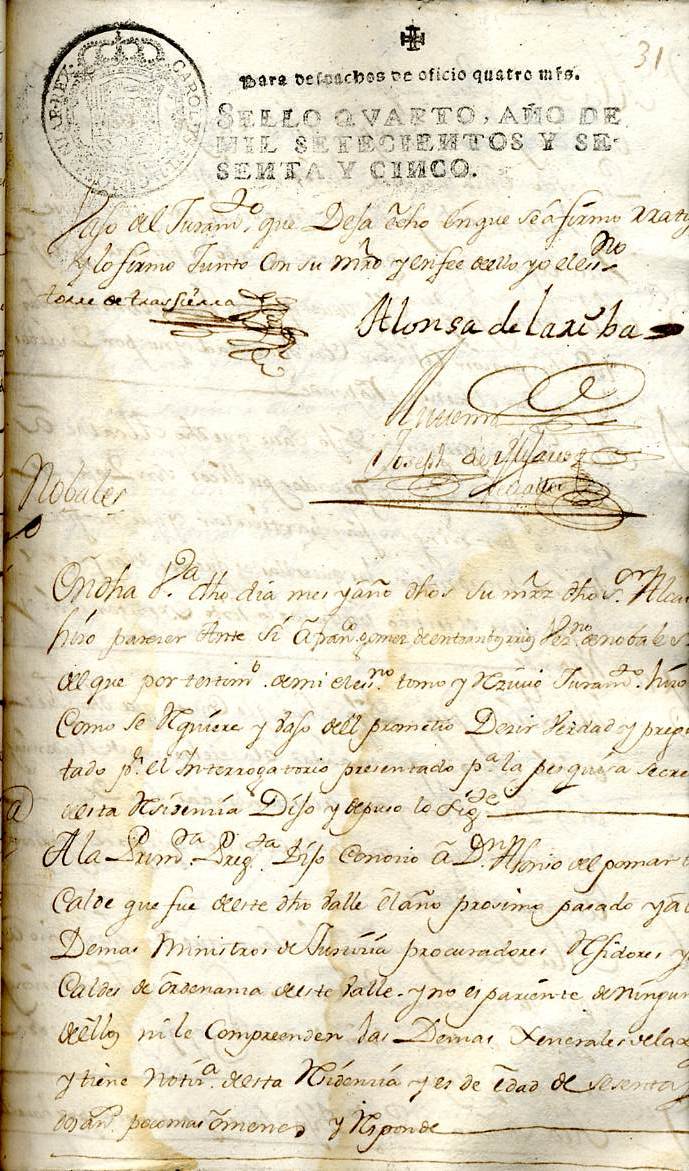 31
Para despachos de oficio quatro mrs.
SELLO QVARTO, AÑO DE
MIL SETECIENTOS Y SE-
SENTA Y CINCO.
CAROLVS
baso del Juramto. que Deja echo en que se afirmo
y lo firmo Junto con su mrd y en fee de ello yo el essno
torre de trassierra
Alonsa de la
Antemi
Joseph de
Nobales
En dha dho dia mes y año dhos su mrd dho Sor Alcal
hizo parecer Ante Si a franco gomez de vezno de nobales
del que por testimo. de mi el esno. tomo y Rzivio Juramto. hizo
Como se Rquiere y baso dell prometio Dezir berdad y pregu
tado pr. el Interrogatorio presentado pa. la pesquisa secre
desta Rsidenzia Dijo y depuso lo sigte
A la Primra. Pregta. Dijo Conozio a Dn Alonso del pomar
Calde que fue de este dho balle el año proximo pasado y a
Demas Ministros de Justizia procuradores Rjidores y
Caldes de ordenanza deste balle. y no es pariente de ningun
dellos ni le Comprenden las Demas Xenerales de la
y tiene Notiza. desta Rsidenzia y es de Edad de sesenta
años. poco mas o menos y Rsponde